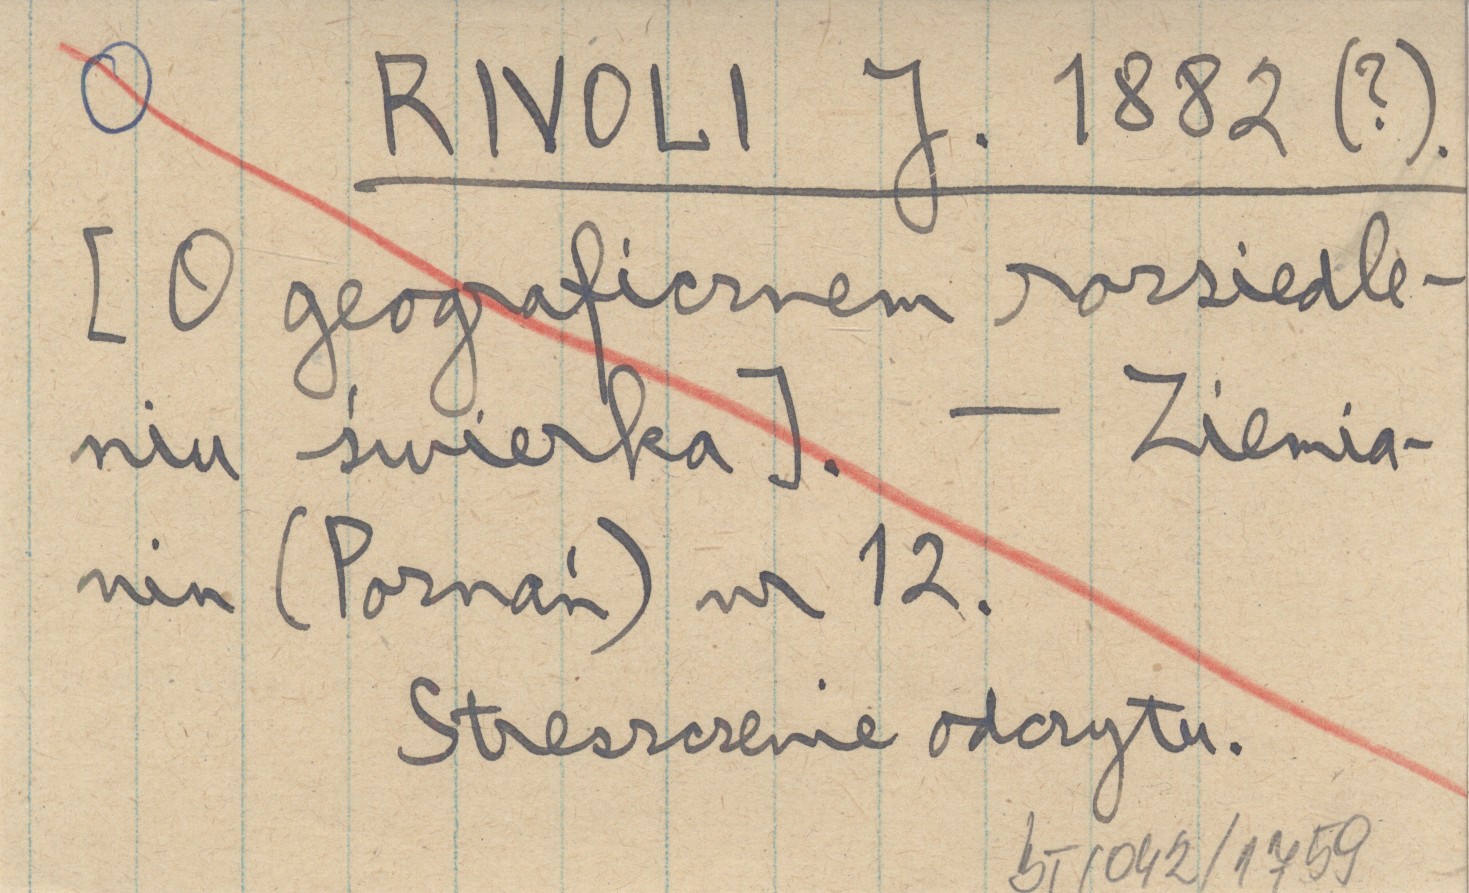 O RIVOLI J. 1882 (?).
[O geograficznem rozsiedle-
niu świerka]. — Ziemia-
nin (Poznań) nr 12.
Streszczenie odczytu.
bI/042/1759